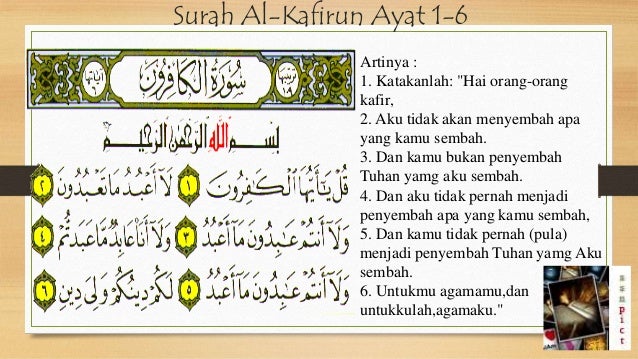 Surah Al-Kafirun Ayat 1-6
سُورَةُ الْكَافِرُونَ
بِسْمِ اللَّهِ الرَّحْمَٰنِ الرَّحِيمِ
قُلْ يَٰٓأَيُّهَا ٱلْكَٰفِرُونَ ١ لَآ أَعْبُدُ مَا تَعْبُدُونَ ٢
وَلَآ أَنتُمْ عَٰبِدُونَ مَآ أَعْبُدُ ٣ وَلَآ أَنَا۠ عَابِدٌ مَّا عَبَدتُّمْ ٤
وَلَآ أَنتُمْ عَٰبِدُونَ مَآ أَعْبُدُ ٥ لَكُمْ دِينُكُمْ وَلِىَ دِينِ ٦
Artinya :
1. Katakanlah: "Hai orang-orang
kafir,
2. Aku tidak akan menyembah apa
yang kamu sembah.
3. Dan kamu bukan penyembah
Tuhan yamg aku sembah.
4. Dan aku tidak pernah menjadi
penyembah apa yang kamu sembah,
5. Dan kamu tidak pernah (pula)
menjadi penyembah Tuhan yamg Aku
sembah.
6. Untukmu agamamu,dan
untukkulah,agamaku."
pict